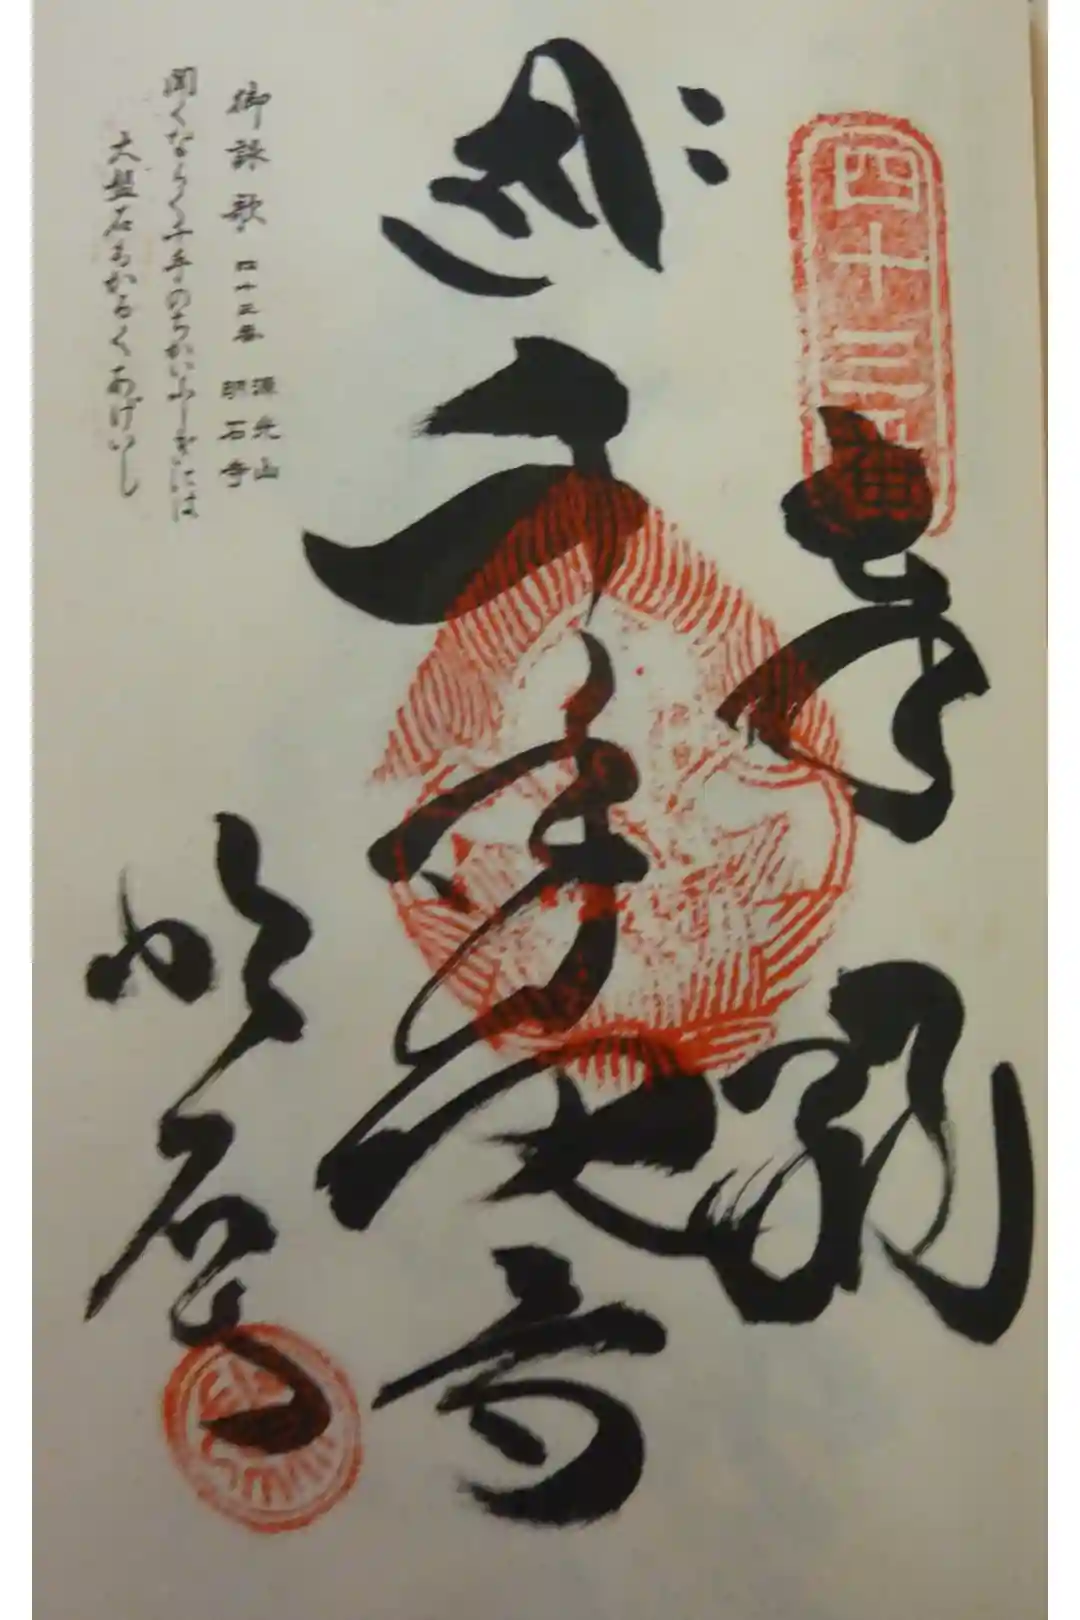 四十三番
奉納
千手大士
明石寺
御詠歌 四十三番 源光山 明石寺
聞くならく千手のちかいふしぎには
大盤石もかろくあげいし